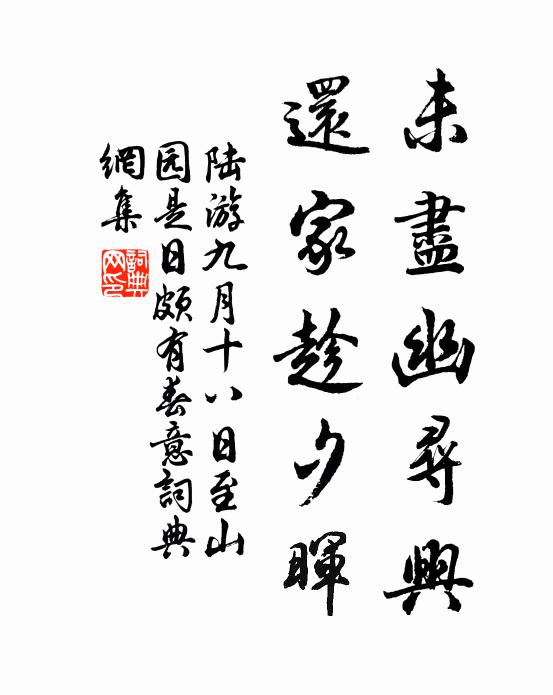 未盡幽尋興
還家趁夕暉
陆游九月十八日至山
园是日颇有春意詞典
網集
詞典
网印